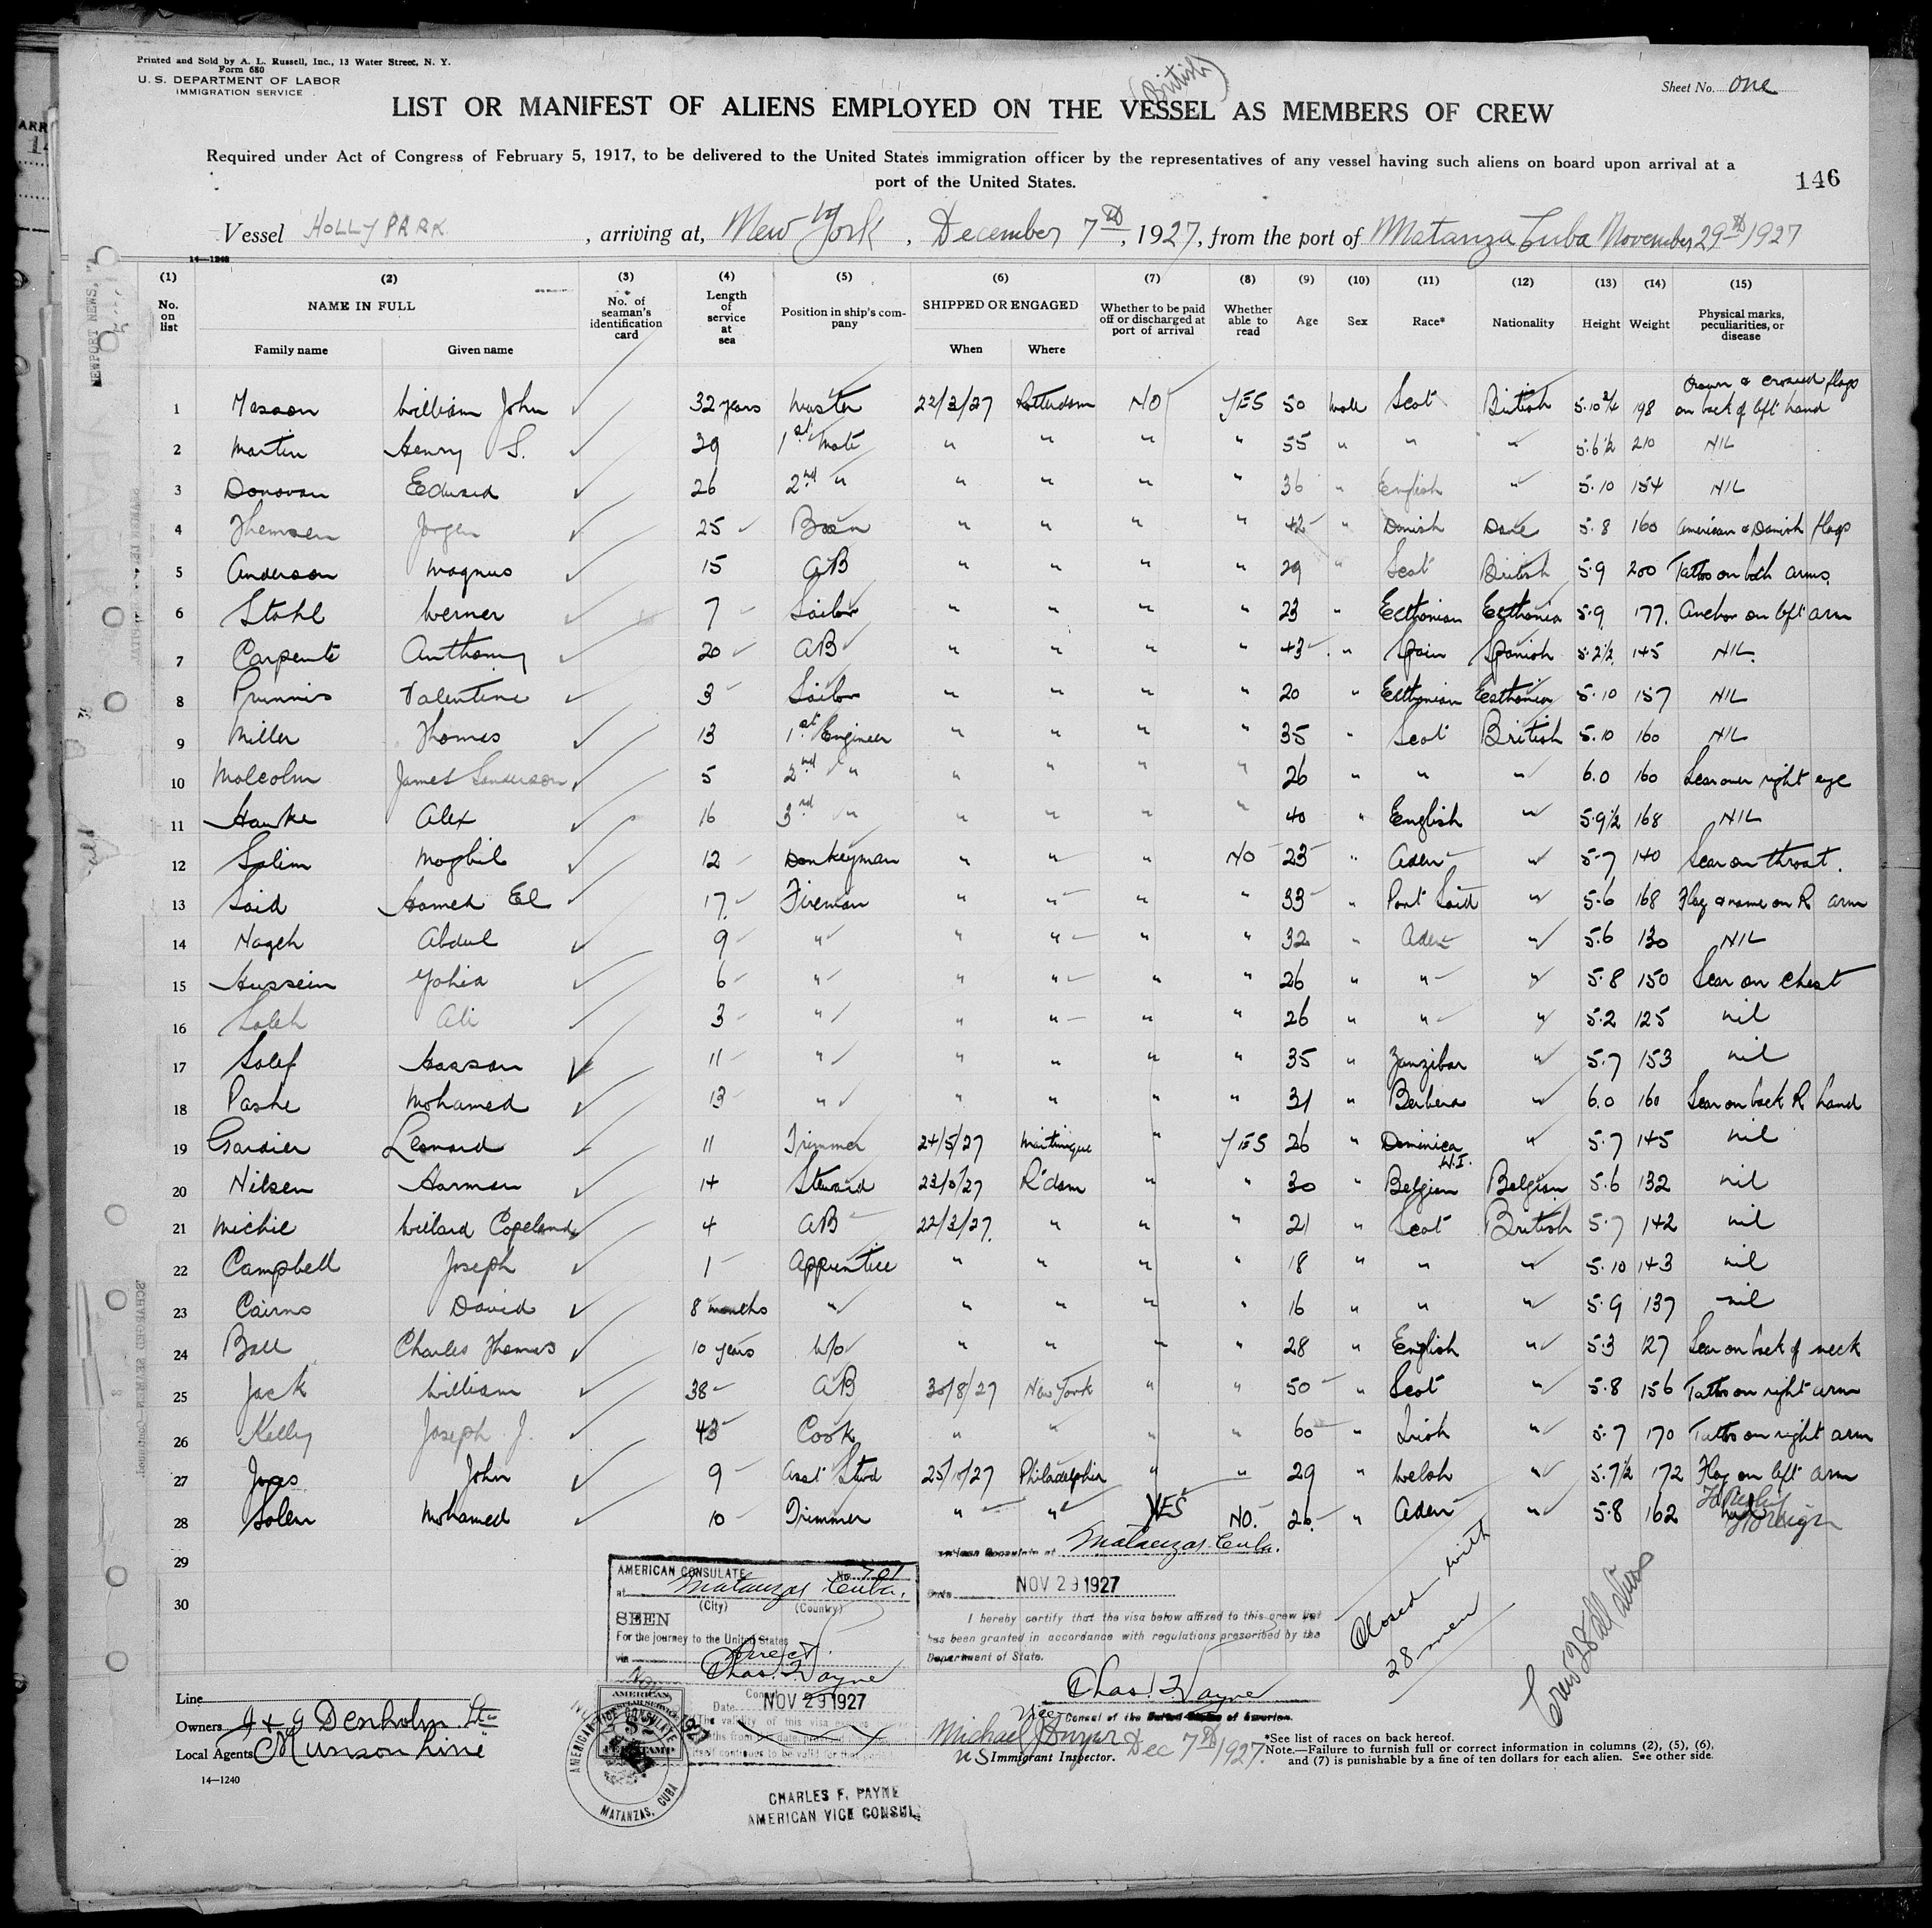 Printed and Sold by A. L. Russell, Inc., 13 Water Street, N. Y.
Form 680
U. S. DEPARTMENT OF LABOR
IMMIGRATION SERVICE
(British)
Sheet No. one
LIST OR MANIFEST OF ALIENS EMPLOYED ON THE VESSEL AS MEMBERS OF CREW
Required under Act of Congress of February 5, 1917, to be delivered to the United States immigration officer by the representatives of any vessel having such aliens on board upon arrival at a
port of the United States.
146
Vessel HOLLY PARK, arriving at, New York, December 7th, 1927, from the port of Matanza Cuba November 29th 1927
14-1240
(1) (2) (3) (4) (5) (6) (7) (8) (9) (10) (11) (12) (13) (14) (15)
No. on list NAME IN FULL No. of seaman's identification card Length of service at sea Position in ship's company SHIPPED OR ENGAGED Whether to be paid off or discharged at port of arrival Whether able to read Age Sex Race* Nationality Height Weight Physical marks, peculiarities, or disease
Family name Given name When Where
1 William John 32 years Master 22/3/27 Rotterdam NO YES 50 Male Scot British 5.10 3/4 198 Crown & crossed flags on back of left hand
2 Martin Henry S. 29 1st Mate " " " " 55 " " " 5.6 1/2 210 NIL
3 Donovan Edward 26 2nd " " " " " 36 " English " 5.10 154 NIL
4 Thomsen Jorgen 25 Bosn " " " " 42 " Danish Dane 5.8 160 American & Danish flags
5 Anderson Magnus 15 AB " " " " 29 " Scot British 5.9 200 Tattoo on both arms.
6 Stahl Werner 7 Sailor " " " " 23 " Esthonian Esthonia 5.9 177. Anchor on left arm
7 Carpente Anthony 20 AB " " " " 43 " Spain Spanish 5.2 1/2 145 NIL.
8 Valentine 3 Sailor " " " " 20 " Esthonian Esthonia 5.10 157 NIL
9 Miller Thomas 13 1st Engineer " " " " 35 " Scot British 5.10 160 NIL
10 Malcolm James Sanderson 5 2nd " " " " " 26 " " " 6.0 160 Scar over right eye
11 Hawke Alex 16 3rd " " " " " 40 " English " 5.9 1/2 168 NIL
12 Salim Moghil 12 Donkeyman " " " NO 23 " Aden " 5.7 140 Scar on throat.
13 Said Hamed El 17 Fireman " " " " 33 " Port Said " 5.6 168 Flag & name on R arm
14 Nageh Abdul 9 " " " " " 32 " Aden " 5.6 130 NIL
15 Hussein Yohia 6 " " " " " 26 " " " 5.8 150 Scar on chest
16 Saleh Ali 3 " " " " " 26 " " " 5.2 125 nil
17 Salef Hassan 11 " " " " " 35 " Zanzibar " 5.7 153 nil
18 Pashe Mohamed 13 " " " " " 31 " Berbera " 6.0 160 Scar on back R hand
19 Gardier Leonard 11 Trimmer 24/5/27 Martinique " YES 26 " Dominica W.I. " 5.7 145 nil
20 Nilsen Harman 14 Steward R'dam " " 30 " Belgian Belgian 5.6 132 nil
21 Michie Willard Copeland 4 AB 22/3/27. " " " 21 " Scot British 5.7 142 nil
22 Campbell Joseph 1 Apprentice " " " " 18 " " " 5.10 143 nil
23 Cairns David 8 months " " " " " 16 " " " 5.9 137 nil
24 Ball Charles Thomas 10 years W/o " " " " 28 " English " 5.3 127 Scar on back of neck
25 Jack William 38 AB 30/8/27 New York " " 50 " Scot " 5.8 156 Tattoo on right arm
26 Kelly Joseph J. 43 Cook " " " " 60 " Irish " 5.7 170 Tattoo on right arm
27 Jones John 9 Asst Stwd 25/10/27 Philadelphia " " 29 " Welsh " 5.7 1/2 172 Flag on left arm
28 Salem Mohamed 10 Trimmer " " YES NO. 26. " Aden " 5.8 162 nil
29
30
AMERICAN CONSULATE No.
at Matanzas Cuba.
(City) (Country)
SEEN
For the journey to the United States
via Direct.
Chas. F. Payne
Consul
Date NOV 29 1927
AMERICAN VICE CONSULATE
MATANZAS, CUBA
CHARLES F. PAYNE
AMERICAN VICE CONSUL
American Consulate at Matanzas Cuba.
Date NOV 29 1927
I hereby certify that the visa below affixed to this crew list
has been granted in accordance with regulations prescribed by the
Department of State.
Chas. F. Payne
Vice Consul of the United States of America.
US Immigrant Inspector. Dec 7th 1927.
Closed with
28 men
Crew 28 all
Line
Owners J & J Denholm Ltd
Local Agents Munson Line
14-1240
*See list of races on back hereof.
Note.—Failure to furnish full or correct information in columns (2), (5), (6),
and (7) is punishable by a fine of ten dollars for each alien. See other side.
NEWPORT NEWS,